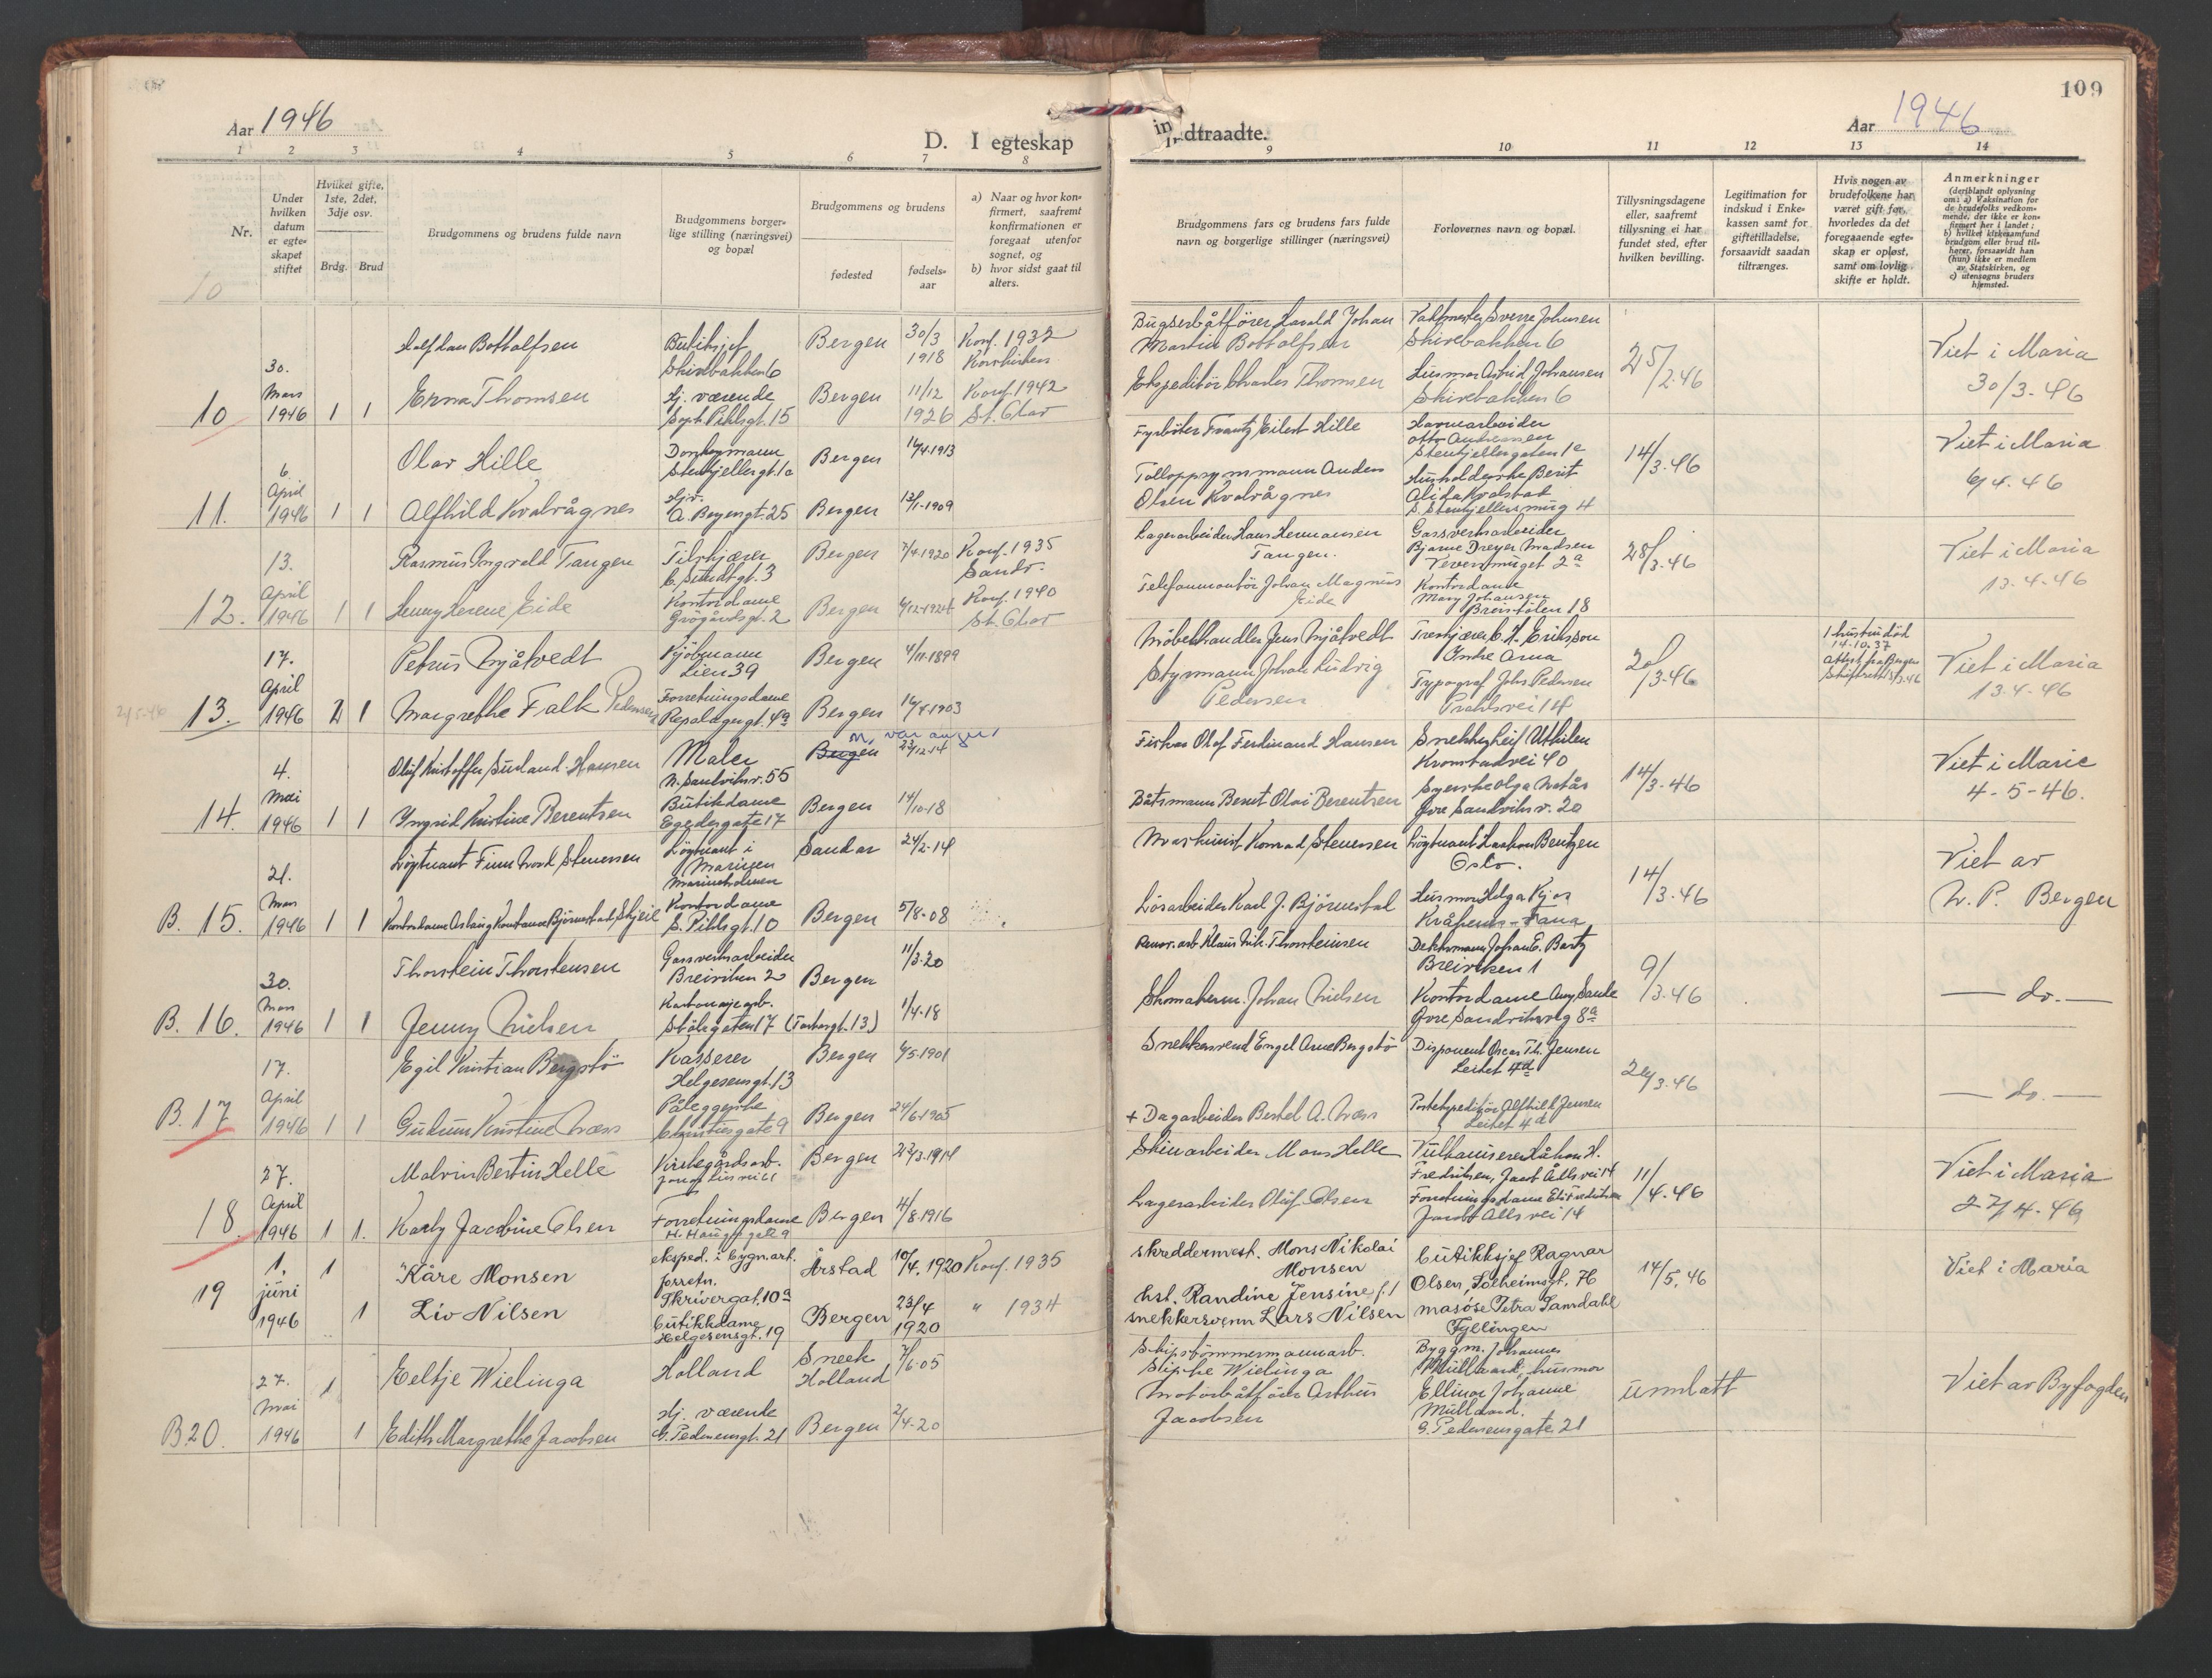 109
Aar 1946
D. I egteskap
indtraadte.
Aar 1946
1 2 3 4 5 6 7 8 9 10 11 12 13 14
Nr.
Under hvilken datum er egteskapet stiftet
Hvilket gifte, 1ste, 2det, 3dje osv.
Brdg. Brud
Brudgommens og brudens fulde navn
Brudgommens borgerlige stilling (næringsvei) og bopæl
Brudgommens og brudens
fødested
fødselsaar
a) Naar og hvor konfirmert, saafremt konfirmationen er foregaat utenfor sognet, og
b) hvor sidst gaat til alters.
Brudgommens fars og brudens fars fulde navn og borgerlige stillinger (næringsvei)
Forlovernes navn og bopæl.
Tillysningsdagene eller, saafremt tillysning ei har fundet sted, efter hvilken bevilling.
Legitimation for indskud i Enkekassen samt for giftetilladelse, forsaavidt saadan tiltrænges.
Hvis nogen av brudefolkene har været gift før, hvorledes da det foregaaende egteskap er opløst, samt om lovlig skifte er holdt.
Anmerkninger
(deriblandt oplysning om: a) Vaksination for de brudefolks vedkommende, der ikke er konfirmert her i landet; b) hvilket kirkesamfund brudgom eller brud tilhører, forsaavidt han (hun) ikke er medlem av Statskirken, og c) utensogns bruders hjemsted.
10
10 30. Mars 1946 1 1
Halfdan Bottolfsen Butiksjef Skivebakken 6 Bergen 30/3 1918 Konf. 1932 Korskirken
Bugserbåtfører Harald Johan Martin Bottolfsen
Vaktmester Sverre Johnsen Skivebakken 6
25/2.46
Viet i Maria 30/3-46
Erna Thomsen Hj. værende Sept. Pihlsgt. 15 Bergen 11/12 1926 Konf. 1942 St. Olav
Ekspeditør Charles Thomsen
Husmor Astrid Johansen Skivebakken 6
11. 6. April 1946 1 1
Olav Hille Donkeymann Stenkjellergt. 1a Bergen 16/4.1913
Fyrbøter Frantz Eilert Hille
Havnearbeider Otto Andreassen Stenkjellergaten 1e
14/3.46
Viet i Maria 6/4.46
Alfhild Kvalvågnes Hjv. A. Beyersgt. 25 Bergen 13/1-1909
Tolloppsynsmann Anders Olsen Kvalvågnes
Husholderske Berit
12. 13. April 1946 1 1
Rasmus Ingvald Tangen Tilskjærer C. Sundtgt. 3 Bergen 7/4.1920 Konf. 1935 Sandv.
Lagerarbeider Hans Hermansen Tangen.
Gassverksarbeider Bjarne Dreyer Madsen Veversmuget 2a
28/3.46
Viet i Maria 13-4-46
Jenny Lerene Eide Kontordame Grøgårdsgt. 2 Bergen 6/12-1924 Konf. 1940 St. Olav
Telefonmontør Johan Magnus Eide
Kontordame Mary Johansen Breistølen 18
2/5.46
13. 17. April 1946 2 1
Petrus Mjåtvedt Kjøbmann Lien 39 Bergen 4/11.1899
Møbelhandler Jens Mjåtvedt
Treskjærer C. H. Eriksson Indre Arna
20/3.46
1 hustru død 14.10.37 Attest fra Bergen Skifterett 15/3.46
Viet i Maria 13.4-46
Margrethe Falk Pedersen Forretningsdame Repslagergt. 4a Bergen 16/4.1903
Styrmann Johan Ludvig Pedersen
Typograf Johs Pedersen Prahlsvei 14
14. 4. Mai 1946 1 1
Oluf Kristoffer Sunland Hansen Maler N. Sandviksv. 55 Bergen 23/12.14
Fisker Olaf Ferdinand Hansen
Kronstadvei 40
14/3-46
Viet i Marie 4-5-46.
Yngrid Kristine Berentsen Butikdame Egedesgate 17 Bergen 14/10-18
Båtsmann Bernt Olai Berentsen
Syerske Olga Øvre Sandviksv. 20
B. 15. 21. Mars 1946 1 1
Løytnant Finn Stenersen Løytnant i Marinen Marineholmen Sandar 24/2-14
Maskinist Konrad Stenersen
Løytnant Haakon Bentzen Oslo.
14/3.46
Viet av N. P. Bergen
Kontordame Aslaug Konstanse Bjørnestad Skjeie Kontordame S. Pihlsgt. 10 Bergen 5/8-08
Løsarbeider Karl J. Bjørnestad
Husmor Helga Kråkenes - Fana
B. 16. 30. Mars 1946 1 1
Thorstein Thorstensen Gassverksarbeider Breiviken 2 Bergen 11/3.20
Renov. arb. Klaus Mik. Thorsteinsen
Dekksmann Johan E. Bartz Breiviken 1
9/3.46
do.
Jenny Nielsen Kartonasjearb. Stølegaten 17 (Torborgt. 13) 1/4-18
Skomakerm. Johan Nielsen
Kontordame Øvre Sandviksveg 8a
B. 17 17. April 1946 1 1
Egil Kristian Bergstø Kasserer Helgesensgt. 13 Bergen 4/5.1901
Snekkersvend Engel Arne Bergstø
Disponent Oscar Th. Jensen Leitet 4d
26/3.46
do.
Gudrun Kristine Næss Påleggerske Christiesgate 9 Bergen 24/6.1905
+ Dagarbeider Bertel A. Næss
Postekspeditør Alfhild Jensen Leitet 4d
18. 27. April 1946 1 1.
Malvin Bertin Helle Kirkegårdsarb. Bergen 23/3.1914
Skinarbeider Mons Helle
Vulkaniserer Håkon H. Fredriksen, Jacob Alls vei 14
11/4.46
Viet i Maria 27/4-46
Karly Jacobine Olsen Forretningsdame Bergen 4/8.1916
Lagerarbeider Oluf Olsen
Forretningsdame Elsi Fredriksen Jacob Alls vei 14
19 1. juni 1946 1 1
Kåre Monsen eksped. i bygn.art. forretn. Skrivergat. 10a Årstad 10/4.1920 Konf. 1935
skreddermest. Mons Nikolai Monsen
butikksjef Ragnar Olsen, Solheimsgt. 76
14/5.46
Viet i Maria
Liv Nilsen butikkdame Helgesensgt. 19 Bergen 23/4 1920 " 1934
hst. Randine Jensine f. snekkersvenn Lars Nilsen
masøse Petra Samdahl Fyllingen
B20. 27. Mai 1946 1 1
Eeltje Wielinga Holland Sneek Holland 7/6.05
Skipstømmermannarb. Slipke Wielinga
Byggm. Johannes
unnlatt
Viet av Byfogden
Edith Margrethe Jacobsen Hj. værende G. Pedersensgt. 21 Bergen 2/4-20
Motorbåtfører Arthur Jacobsen
husmor Ellinor Johanne G. Pedersensgate 21